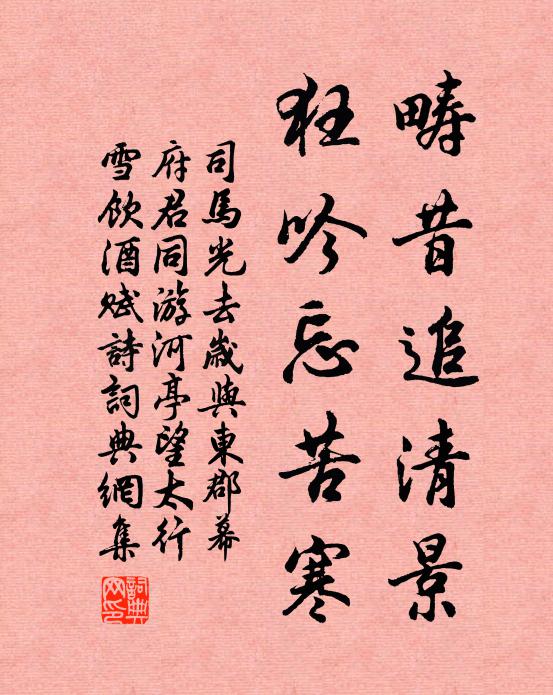 疇昔追清景
狂吟忘苦寒
司馬光去歲與東郡幕
府君同游河亭望太行
雪飲酒賦詩詞典網集
詞典网印